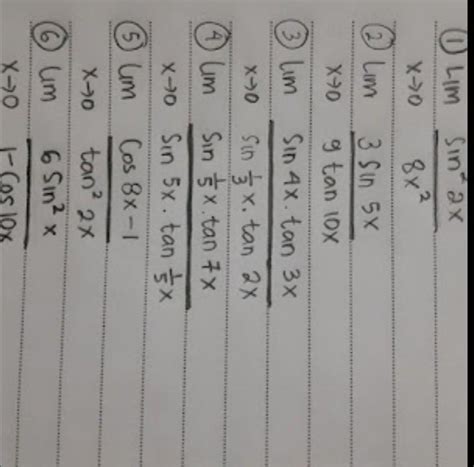 ① Lim sin² 2x
x→0 8x²
② Lim 3 sin 5x
x→0 9 tan 10x
③ Lim Sin 4x . tan 3x
x→0 Sin 1/3 x . tan 2x
④ Lim Sin 1/5 x . tan 7x
x→0 Sin 5x . tan 1/5 x
⑤ Lim Cos 8x - 1
x→0 tan² 2x
⑥ Lim 6 Sin² x
x→0 1-Cos 10x